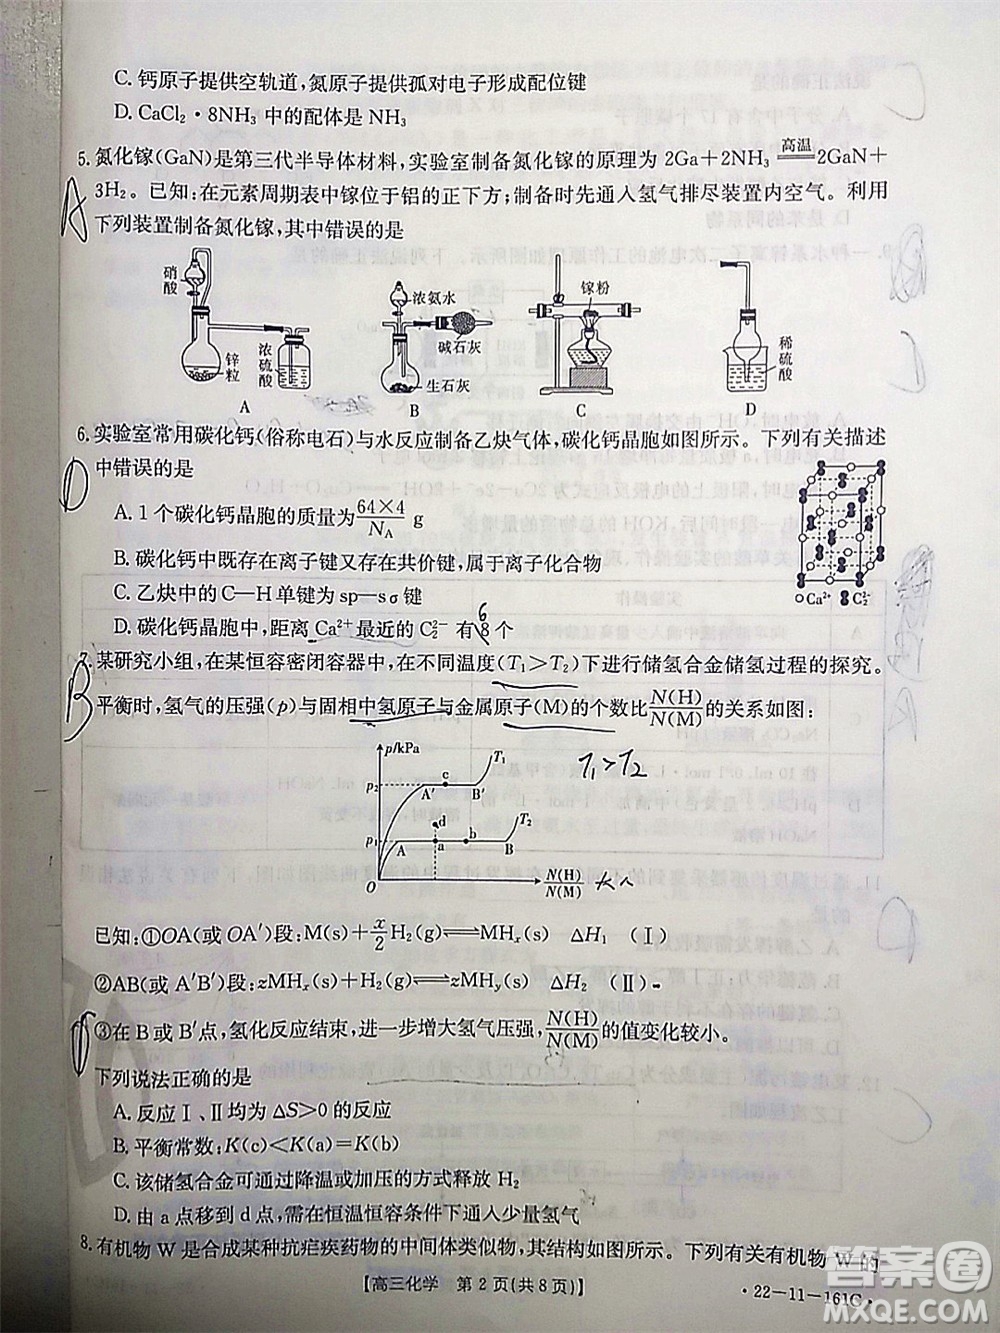 C. 钙原子提供空轨道，氮原子提供孤对电子形成配位键
D. CaCl₂·8NH₃ 中的配体是 NH₃
5. 氮化镓(GaN)是第三代半导体材料，实验室制备氮化镓的原理为 2Ga+2NH₃ 高温 2GaN+
3H₂。已知：在元素周期表中镓位于铝的正下方；制备时先通入氢气排尽装置内空气。利用
A
下列装置制备氮化镓，其中错误的是
硝酸
锌粒
浓硫酸
A
浓氨水
碱石灰
生石灰
B
镓粉
C
稀硫酸
D
6. 实验室常用碳化钙(俗称电石)与水反应制备乙炔气体，碳化钙晶胞如图所示。下列有关描述
D
中错误的是
A. 1 个碳化钙晶胞的质量为 64×4/N_A g
B. 碳化钙中既存在离子键又存在共价键，属于离子化合物
C. 乙炔中的 C—H 单键为 sp—s σ 键
D. 碳化钙晶胞中，距离 Ca²⁺ 最近的 C₂²⁻ 有 8 个
6
○Ca²⁺ C₂²⁻
7. 某研究小组，在某恒容密闭容器中，在不同温度(T₁>T₂)下进行储氢合金储氢过程的探究。
B
平衡时，氢气的压强(p)与固相中氢原子与金属原子(M)的个数比 N(H)/N(M) 的关系如图：
p/kPa
T₁
p₂ A′ c B′
T₂
d
p₁ A a b B
O
N(H)/N(M)
T₁>T₂
已知：①OA(或 OA′)段：M(s)+x/2 H₂(g)⇌MHₓ(s) ΔH₁ (Ⅰ)
②AB(或 A′B′)段：zMHₓ(s)+H₂(g)⇌zMHᵧ(s) ΔH₂ (Ⅱ)
③在 B 或 B′点，氢化反应结束，进一步增大氢气压强，N(H)/N(M) 的值变化较小。
下列说法正确的是
A. 反应Ⅰ、Ⅱ均为 ΔS>0 的反应
B. 平衡常数：K(c)<K(a)=K(b)
C. 该储氢合金可通过降温或加压的方式释放 H₂
D. 由 a 点移到 d 点，需在恒温恒容条件下通入少量氢气
8. 有机物 W 是合成某种抗疟疾药物的中间体类似物，其结构如图所示。下列有关有机物 W 的
【高三化学 第 2 页(共 8 页)】
·22-11-161C·
答案圈
MXQE.COM